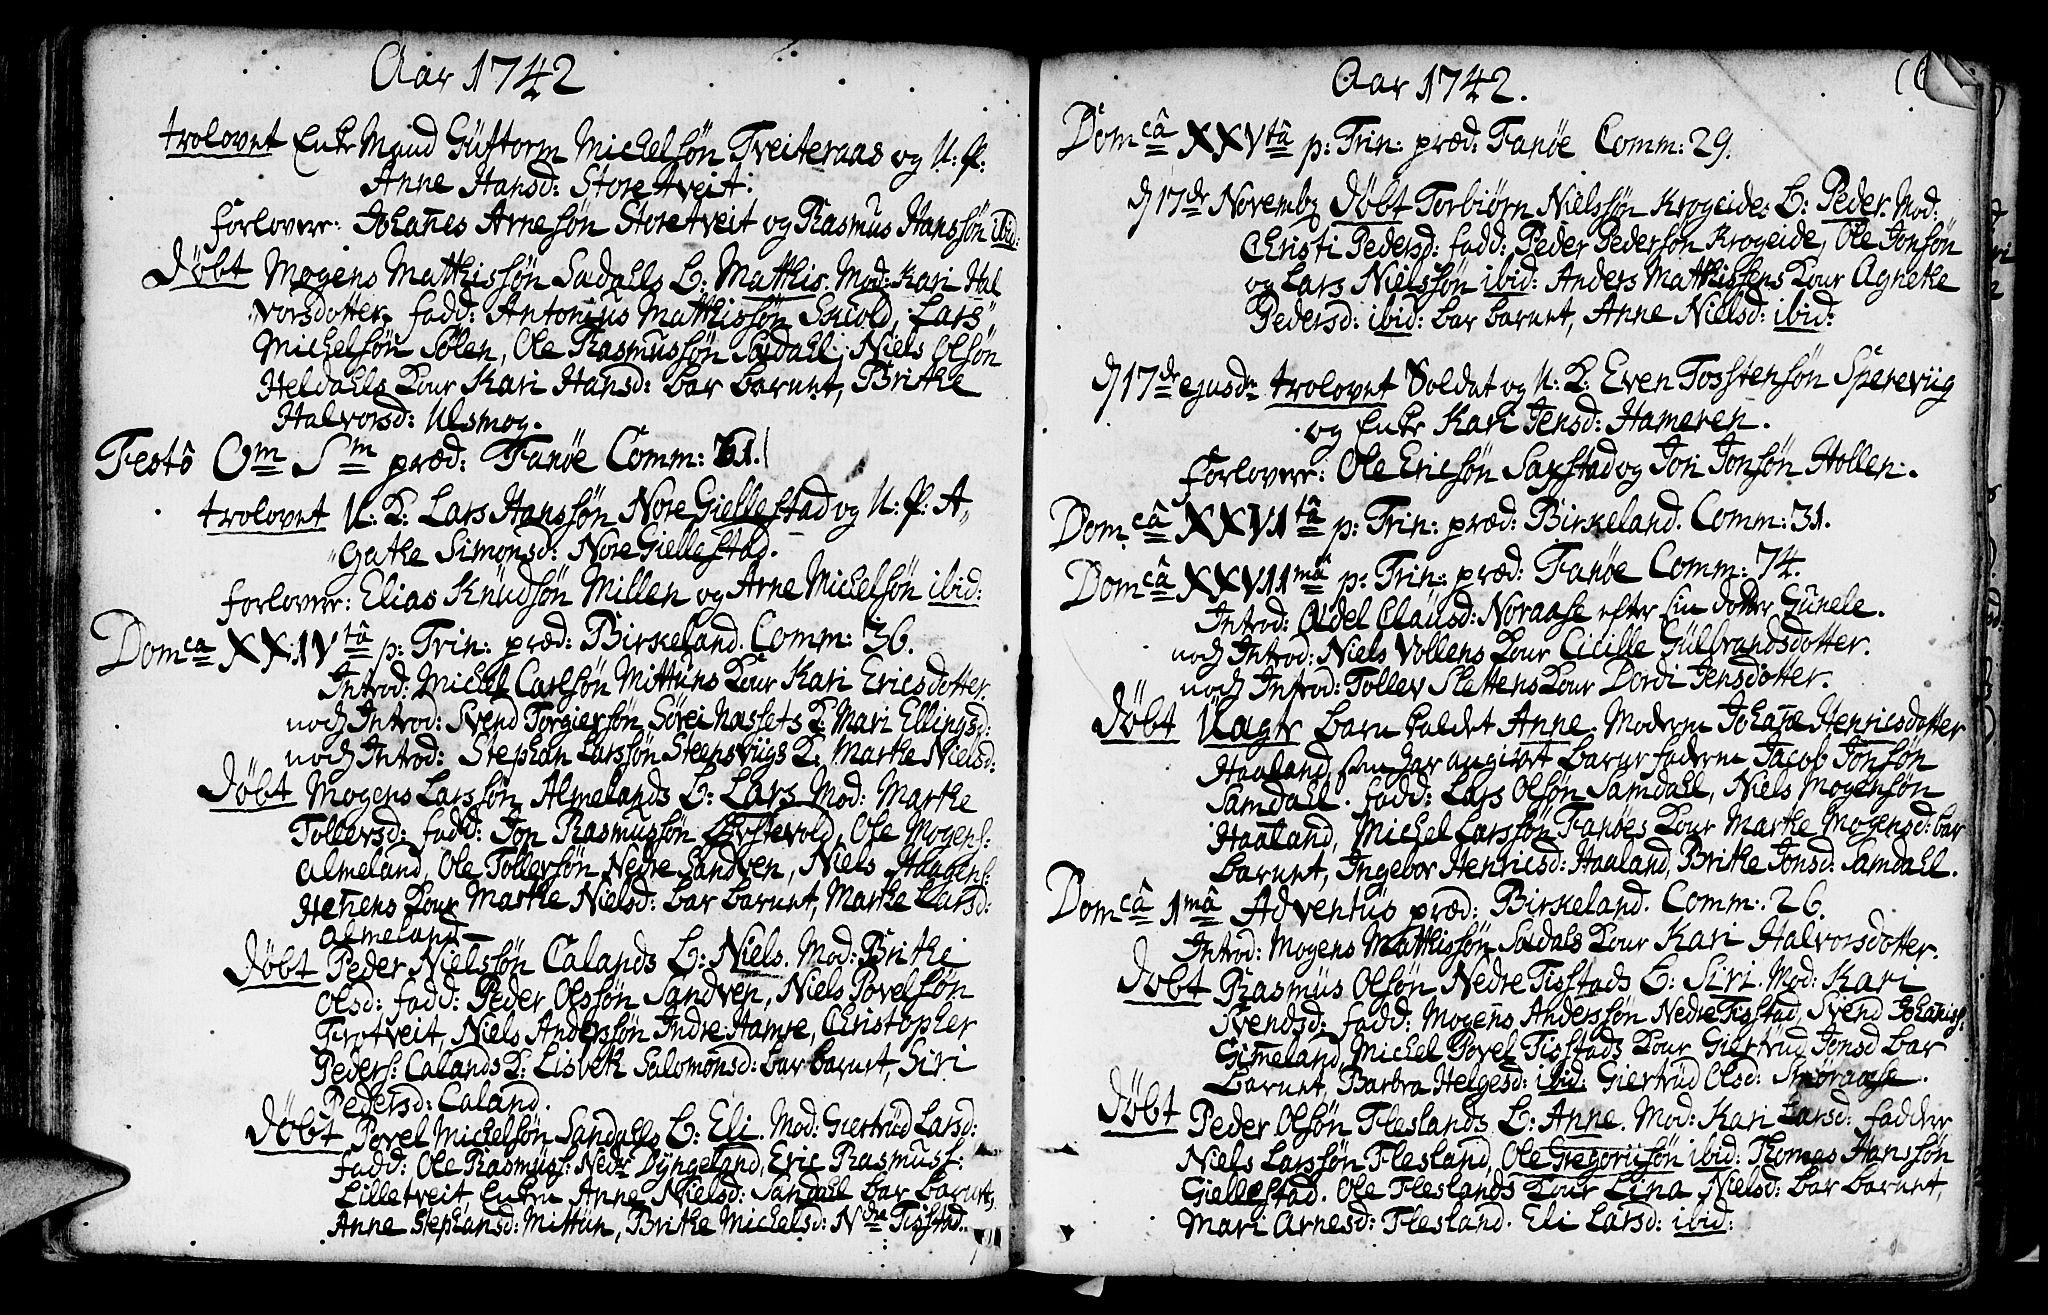 Aar 1742
trolovet Enke Mand Guttorm Michelsøn Tveiteraas og U: P:
Anne Hansd: Storetveit.
Forlovere: Johanes Arnesøn Storetveit og Rasmus Hanssøn ibid:
Døbt Mogens Matthissøn Sædals B: Matthis. Mod: Kari Hal
vorsdotter, fadd: Antonius Matthissøn, Lars
Michelsøn Sølen, Ole Rasmussøn Sædal, Niels Olsøn
Heldahls Kone Kari Hansd: bar barnet, Britke
Halvorsd: Ulsmog.
Festô Om Sm præd: Fanøe Comm: 61.
trolovet U: K: Lars Hanssøn Nore Giellestad og U: P: A,,
,,gatke Simonsd: Nore Giellestad.
Forlovere: Elias Knudsøn Millen og Arne Michelsøn ibid:
Domca XXIVtâ p: Trin: præd: Birkeland. Comm: 36.
Introd: Michel Carlsøn Mittuns Kone Kari Ericsdotter.
noch Introd: Svend Torgiersøn Sørei Nessets K: Mari Ellingsd:
noch Introd: Stephan Larssøn Steensviigs K: Martke Nielsd:
Døbt Mogens Larssøn Almelands B: Lars Mod: Martke
Tollevsd: fadd: Jon Rasmussøn Østevold, Ole Mogens:
Almeland, Ole Tollevsøn Nedre Sandven, Niels Haagens:
Hennes Kone Martke Nielsd: bar barnet, Martke Larsd:
Almeland
Døbt Peder Nielssøn Calands B: Niels. Mod: Britke
Olsd: fadd: Peder Olssøn Sandven, Niels Povelsøn
Frotveit, Niels Anderssøn Indre Hamre, Christopher
Peders: Calands K: Lisbeth Salomonsd: bar barnet, Siri
Pedersd: Caland.
Døbt Povel Michelsøn Sandalls B: Eli. Mod: Giertrud Larsd:
fadd: Ole Rasmuss: Nedre Dyngeland, Eric Rasmuss:
Lilletveit Enken Anne Nielsd: Sandall bar barnet,
Anne Stephansd: Mittun, Britke Michelsd: Ndre Tisstad.
Aar 1742.
Domcâ XXVtâ p: Trin: præd: Fanøe Comm: 29.
d 17de Novembr Døbt Torbiørn Nielssøn Krogeide: B: Peder. Mod:
Christi Pedersd: fadd: Peder Pedersøn Krogeide, Ole Jonsøn
og Lars Nielssøn ibid: Anders Matthissens Kone Agnetke
Pedersd: ibid: bar barnet, Anne Nielsd: ibid:
d 17de ejusdm trolovet Soldat og U: K: Even Tosstensøn Sperevüg
og Enke Kari Jensd: Hameren.
Forlovere: Ole Ericsøn Saxstad og Jon Jonsøn Hollen.
Domcâ XXVItâ p: Trin: præd: Birkeland. Comm: 31.
Domcâ XXVIImâ p: Trin: præd: Fanøe Comm: 74.
Introd: Aldel Clausd: Noraase efter sin dotter Gunele.
noch Introd: Niels Vollens Kone Cicille Gulbrandsdotter.
noch Introd: Tollev Slettens Kone Dordi Jensdotter.
Døbt Uægte barn kaldet Anne. Moderen Johañe Henricsdotter
Haaland, som har angivet barne faderen Jacob Jonsøn
Samdall. fadd: Lars Olsøn Samdall, Niels Mogensøn
Haaland, Michel Larssøn Fanøes Kone Martke Mogensd: bar
barnet, Ingebor Henricsd: Haaland, Britke Jonsd: Samdall.
Domcâ 1mâ Adventus præd: Birkeland. Comm: 26.
Introd: Mogens Matthissøn Sædals Kone Kari Halvorsdotter.
Døbt Rasmus Olsøn Nedre Tisstads B: Siri. Mod: Kari
Svendsd: fadd: Mogens Anderssøn Nedre Tisstad, Svend Johaniss:
Gimeland, Michel Povel Tisstads Kone Giertrud Jonsd bar
barnet, Barbra Helgesd: ibid: Giertrud Olsd: Smøraase.
Døbt Peder Olsøn Flesland: B: Anne. Mod: Kari Larsd: fadder
Niels Larssøn Flesland, Ole Gregoriisøn ibid: Thomas Hanssøn
Giellestad. Ole Fleslands Kone Lina Nielsd: bar barnet,
Mari Arnesd: Flesland. Eli Larsd: ibid: